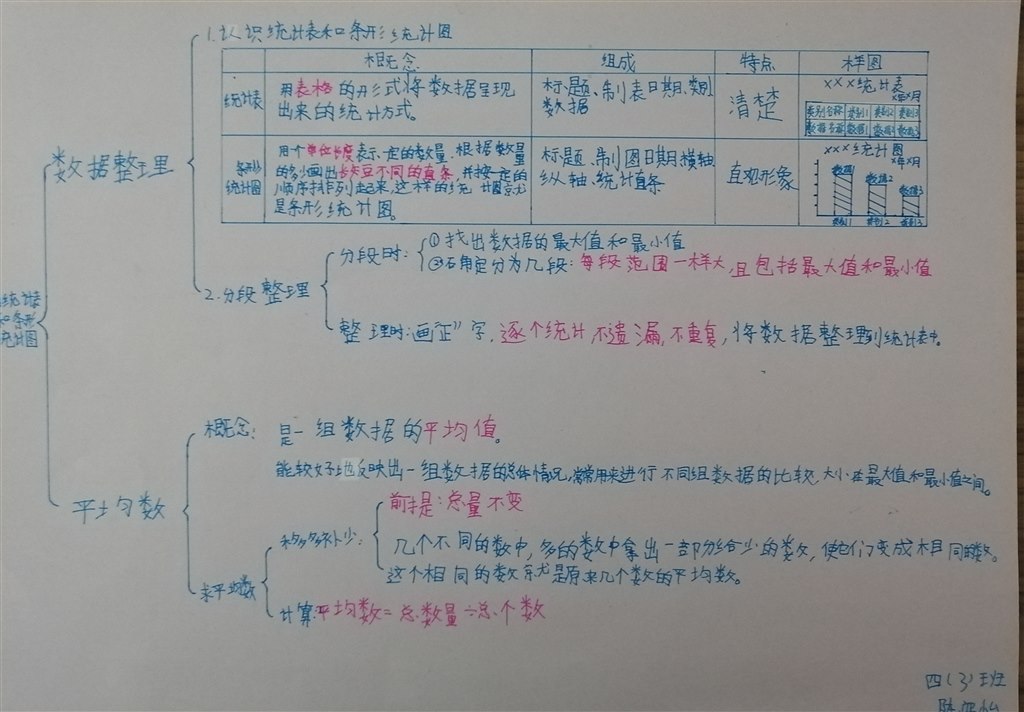 1.认识统计表和条形统计图
概念 组成 特点 样图
统计表
用表格的形式将数据呈现
出来的统计方式。
标题、制表日期、类别
数据
清楚
×××统计表
×年×月
类别名称 类别1 类别2 类别3
数据名称 数据1 数据2 数据3
条形
统计图
用个单位长度表示一定的数量,根据数量
的多少画出长短不同的直条,并按一定的
顺序排列起来,这样的统计图就
是条形统计图。
标题、制图日期、横轴
纵轴、统计直条
直观形象
×××统计图
×年×月
数据1 数据2 数据3
类别1 类别2 类别3
数据整理
2.分段整理
分段时:
①找出数据的最大值和最小值
②确定分为几段:每段范围一样大,且包括最大值和最小值
整理时:画正”字,逐个统计,不遗漏,不重复,将数据整理到统计表中。
统计表
和条形
统计图
平均数
概念:是一组数据的平均值。
能较好地反映出一组数据的总体情况,常常用来进行不同组数据的比较,大小在最大值和最小值之间。
求平均数
移多补少:
前提:总量不变
几个不同的数中,多的数中拿出一部分给少的数,使它们变成相同的数。
这个相同的数就是原来几个数的平均数。
计算:平均数=总数量÷总个数
四(3)班